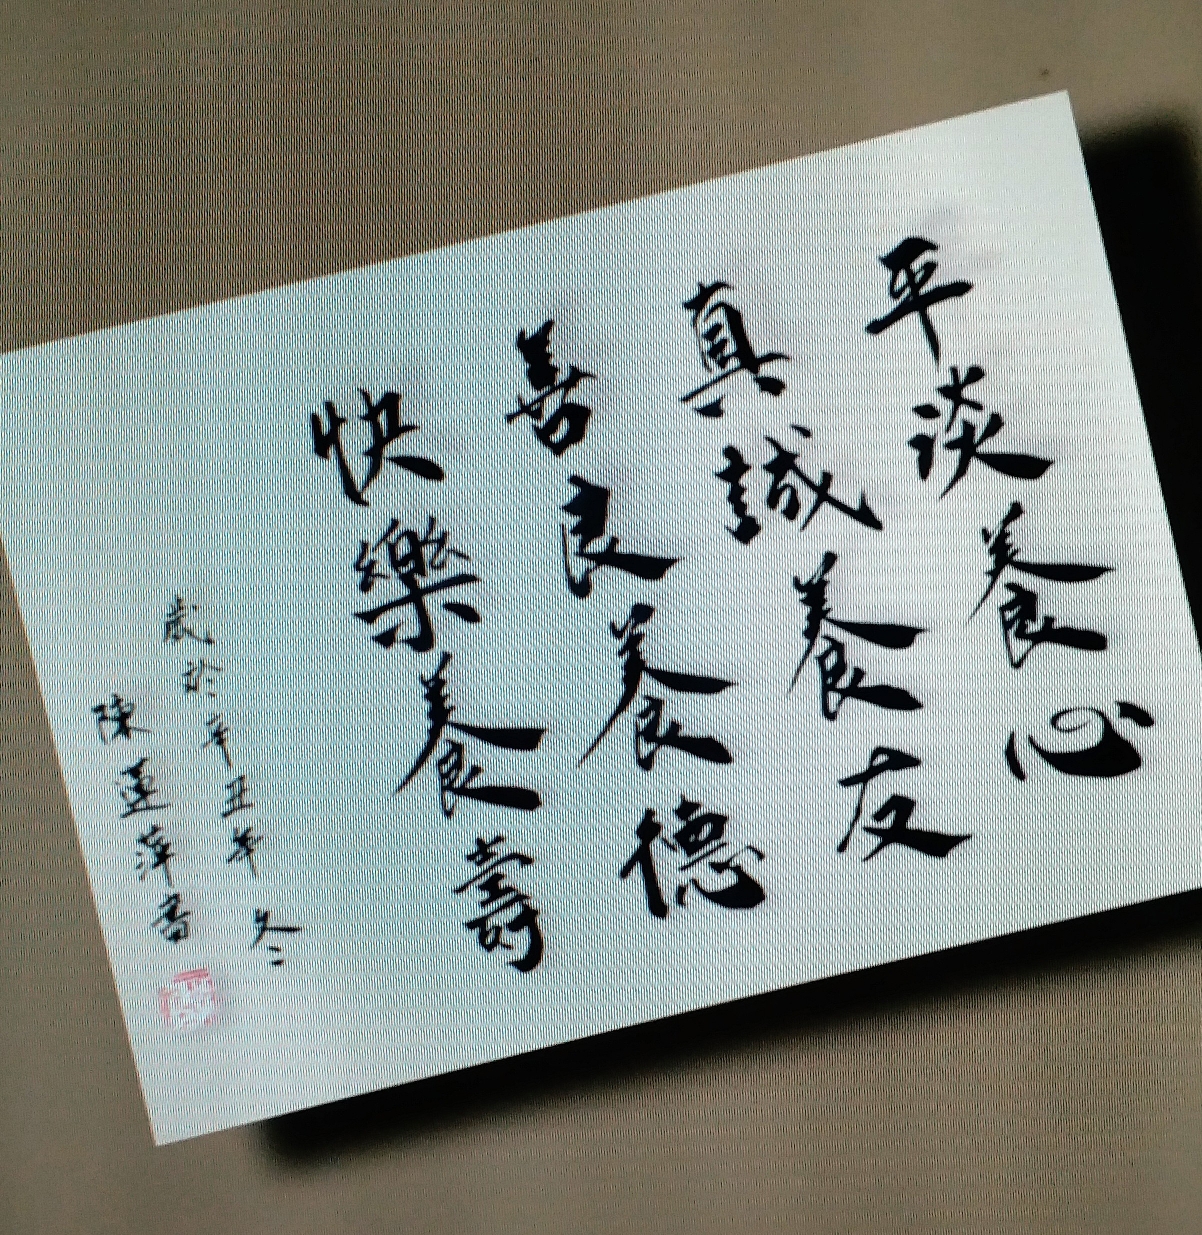 平淡養心
真誠養友
善良養德
快樂養壽
歲於辛丑年冬
陳蓮萍書